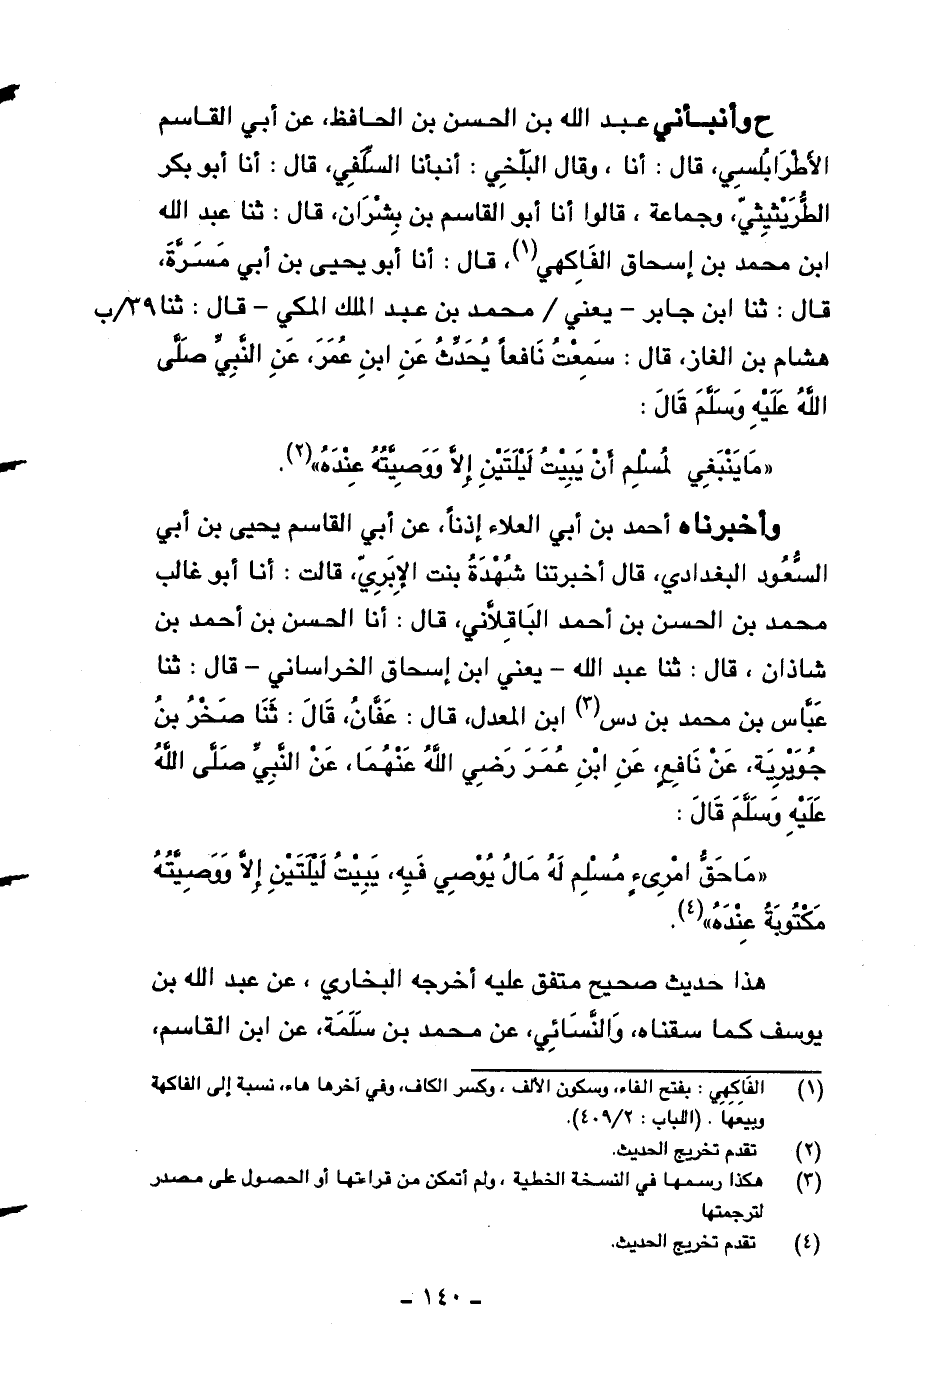 ح وأنبـأني عبـد الله بن الحسن بن الحـافظ، عن أبي القـاسم
الأَطْرَابُلُسِي، قال : أنا ، وقال البَلْخي : أنبأنا السلَفي، قال : أنا أبو بكر
الطُّرَيْثيثيّ، وجماعة ، قالوا أنا أبو القاسم بن بِشْرَان، قال : ثنا عبد الله
ابن محمد بن إسحاق الفَاكِهي(١)، قـال : أنا أبو يحيى بن أبي مَسَرَّةَ،
قال : ثنا ابن جابر – يعني / محمـد بن عبـد الملك المكي – قال : ثنا ٣٩/ب
هشام بن الغاز، قال : سَمِعْتُ نَافعاً يُحَدِّثُ عَنِ ابنِ عُمَرَ، عَنِ النَّبِيِّ صلَّى
اللَّهُ عَلَيْهِ وَسَلَّمَ قَالَ :
«مَايَنْبَغِي لمُسْلِمٍ أَنْ يَبِيْتُ لَيْلَتَيْنِ إِلاَّ وَوَصِيَّتُهُ عِنْدَهُ»(٢).
وأخبرناه أحمد بن أبي العلاء إذناً، عن أبي القاسم يحيى بن أبي
السُّعُود البغدادي، قال أخبرتنا شُهْدَةُ بنت الإبَرِيّ، قالت : أنا أبو غالب
محمد بن الحسن بن أحمد البَاقلاَّني، قال : أنا الحسن بن أحمد بن
شاذان ، قال : ثنا عبد الله – يعني ابن إسحاق الخراساني – قال : ثنا
عَبَّاس بن محمد بن دس(٣) ابن المعدل، قال : عَفَّانُ، قَالَ : ثَنَا صَخْرُ بنُ
جُوَيْرِيَة، عَنْ نَافِعٍ، عَنِ ابْنِ عُمَرَ رَضِي اللَّهُ عَنْهُمَا، عَنْ النَّبِيِّ صَلَّى اللَّهُ
عَلَيْهِ وَسَلَّمَ قَالَ :
«مَاحَقُّ امْرِىءٍ مُسْلِمٍ لَهُ مَالُ يُوْصِي فَيِهِ، يَبِيْتُ لَيْلَتَيْنِ إِلاَّ وَوَصِيَّتُهُ
مَكْتُوبَةُ عِنْدَهُ»(٤).
هذا حديث صحيح متفق عليه أخرجه البخاري ، عن عبد الله بن
يوسف كما سقناه، وَالنَّسَائِي، عن محمد بن سَلَمَة، عن ابن القاسم،
(١) الفَاكِهِي : بفتح الفاء، وسكون الألف ، وكسر الكاف، وفي آخرها هاء، نسبة إلى الفاكهة
وبيعها . (اللباب : ٤٠٩/٢).
(٢) تقدم تخريج الحديث.
(٣) هكذا رسمها في النسخة الخطية ، ولم أتمكن من قراءتها أو الحصول على مصدر
لترجمتها
(٤) تقدم تخريج الحديث.
– ١٤٠ –